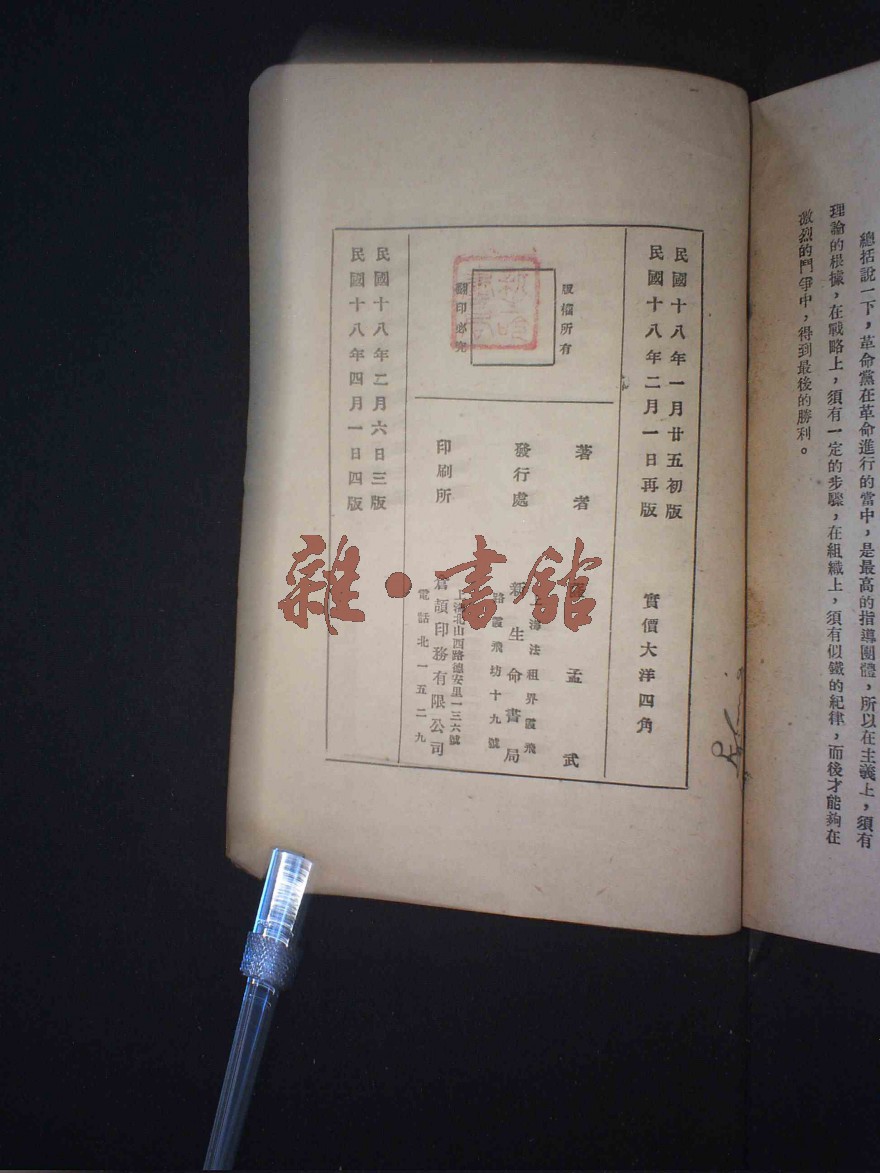 總括說一下，革命黨在革命進行的當中，是最高的指導團體，所以在主義上，須有
理論的根據，在戰略上，須有一定的步驟，在組織上，須有似鐵的紀律，而後才能夠在
激烈的鬥爭中，得到最後的勝利。
民國十八年一月廿五初版
民國十八年二月一日再版
實價大洋四角
版權所有
翻印必究
著者
孟武
發行處
上海法租界霞飛
路霞飛坊十九號
新生命書局
印刷所
上海北山西路德安里一三六號
倉頡印務有限公司
電話北一五二九
民國十八年二月六日三版
民國十八年四月一日四版
雜·書館